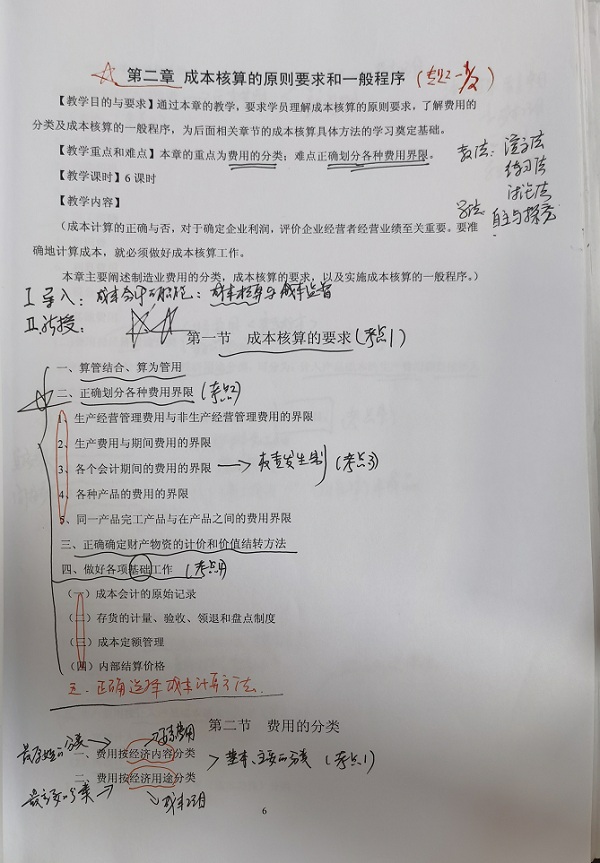 第二章 成本核算的原则要求和一般程序
【教学目的与要求】通过本章的教学，要求学员理解成本核算的原则要求，了解费用的
分类及成本核算的一般程序，为后面相关章节的成本核算具体方法的学习奠定基础。
【教学重点和难点】本章的重点为费用的分类；难点正确划分各种费用界限。
教法：讲授法
练习法
讨论法
学法：自主与探究
【教学课时】6 课时
【教学内容】
（成本计算的正确与否，对于确定企业利润，评价企业经营者经营业绩至关重要。要准
确地计算成本，就必须做好成本核算工作。
本章主要阐述制造业费用的分类，成本核算的要求，以及实施成本核算的一般程序。）
I 导入：成本会计的职能：成本核算与成本监督
II.讲授：
第一节 成本核算的要求（考点1）
一、算管结合、算为管用
二、正确划分各种费用界限（考点2）
1、生产经营管理费用与非生产经营管理费用的界限
2、生产费用与期间费用的界限
3、各个会计期间的费用的界限 → 权责发生制（考点3）
4、各种产品的费用的界限
5、同一产品完工产品与在产品之间的费用界限
三、正确确定财产物资的计价和价值结转方法
四、做好各项基础工作（考点4）
（一）成本会计的原始记录
（二）存货的计量、验收、领退和盘点制度
（三）成本定额管理
（四）内部结算价格
五、正确选择成本计算方法.
第二节 费用的分类
最原始的分类 → 要素费用
一、费用按经济内容分类
基本、主要的分类（考点1）
二、费用按经济用途分类
最主要的分类 → 成本项目
6